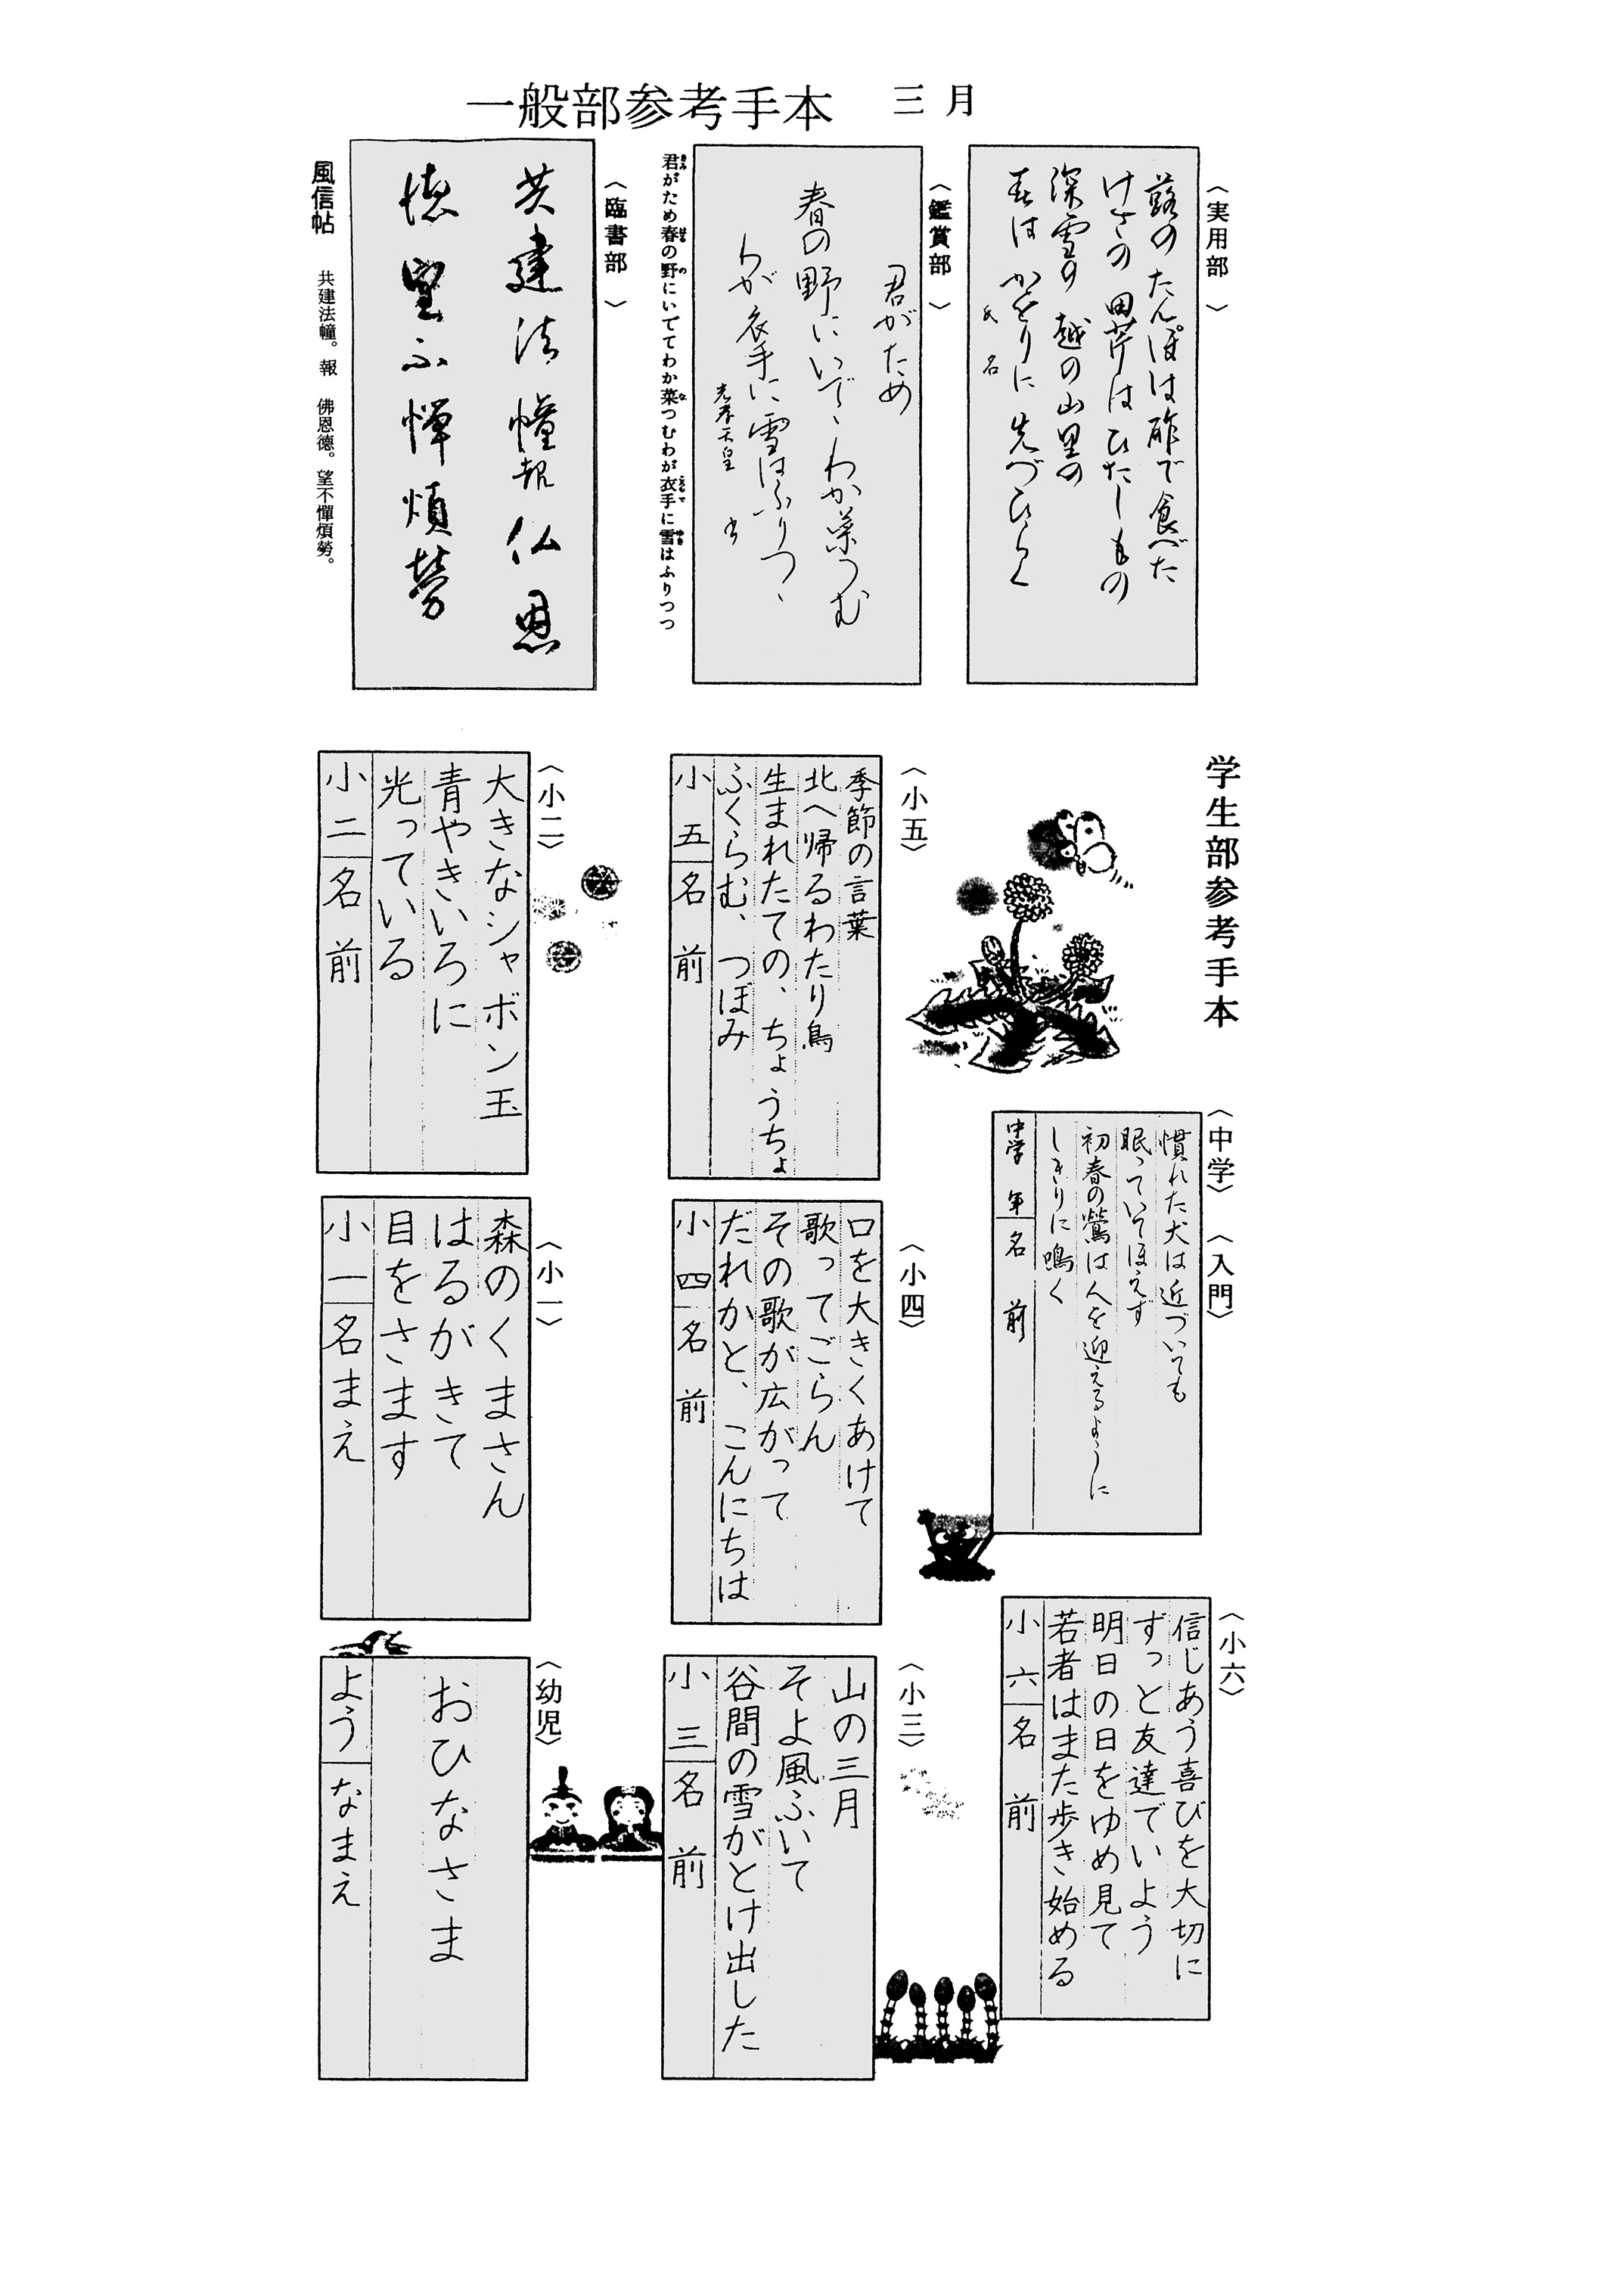 一般部参考手本 三月
〈実用部〉
蕗のたんぽは酢で食べた
けさの田芹はひたしもの
深雪の越の山里の
春はかをりに先づひらく
氏名
〈鑑賞部〉
君がため
春の野にいでゝわか菜つむ
わが衣手に雪はふりつゝ
光孝天皇
君がため春の野にいててわか菜つむわが衣手に雪はふりつつ
〈臨書部〉
共建法幢報仏恩
徳望不憚煩労
風信帖 共建法幢。報 佛恩徳。望不憚煩勞。
学生部参考手本
〈中学〉〈入門〉
慣れた犬は近づいても
眠っていてほえず
初春の鶯は人を迎えるように
しきりに鳴く
中学 年 名前
〈小六〉
信じあう喜びを大切に
ずっと友達でいよう
明日の日をゆめ見て
若者はまた歩き始める
小六 名前
〈小五〉
季節の言葉
北へ帰るわたり鳥
生まれたての、ちょうちょ
ふくらむ、つぼみ
小五 名前
〈小四〉
口を大きくあけて
歌ってごらん
その歌が広がって
だれかと、こんにちは
小四 名前
〈小三〉
山の三月
そよ風ふいて
谷間の雪がとけ出した
小三 名前
〈小二〉
大きなシャボン玉
青やきいろに
光っている
小二 名前
〈小一〉
森のくまさん
はるがきて
目をさます
小一 名まえ
〈幼児〉
おひなさま
よう なまえ